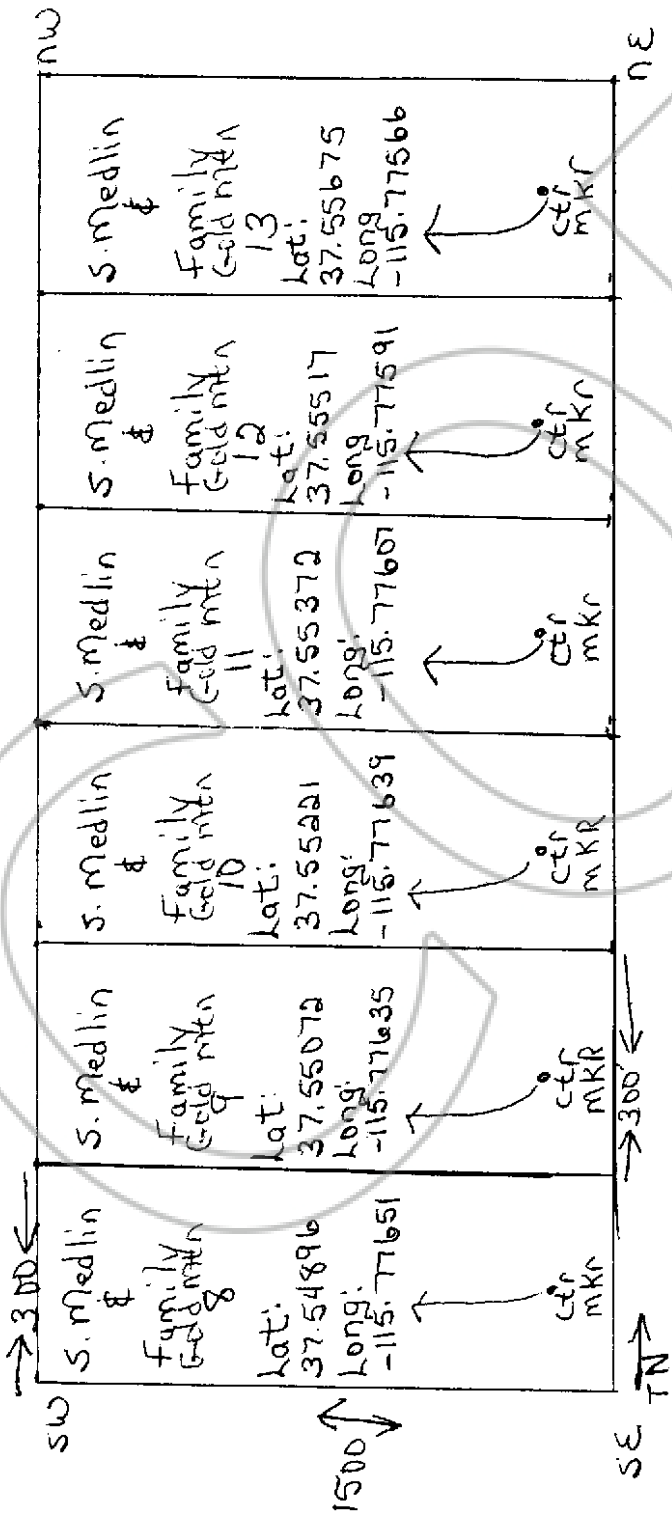 sw
nw
→300←
S. Medlin
&
Family
Gold mtn
8
Lat:
37.54896
Long:
-115.77651
ctr
mkr
S. Medlin
&
Family
Gold mtn
9
Lat:
37.55072
Long:
-115.77635
ctr
mkR
S. Medlin
&
Family
Gold mtn
10
Lat:
37.55221
Long:
-115.77639
ctr
mKR
S. Medlin
&
Family
Gold mtn
11
Lat:
37.55372
Long:
-115.77607
ctr
mkr
S. Medlin
&
Family
Gold mtn
12
Lat:
37.55517
Long
-115.77591
ctr
mkr
S. Medlin
&
Family
Gold mtn
13
Lat:
37.55675
Long
-115.77566
ctr
mkr
1500
→300'←
SE
nE
TN